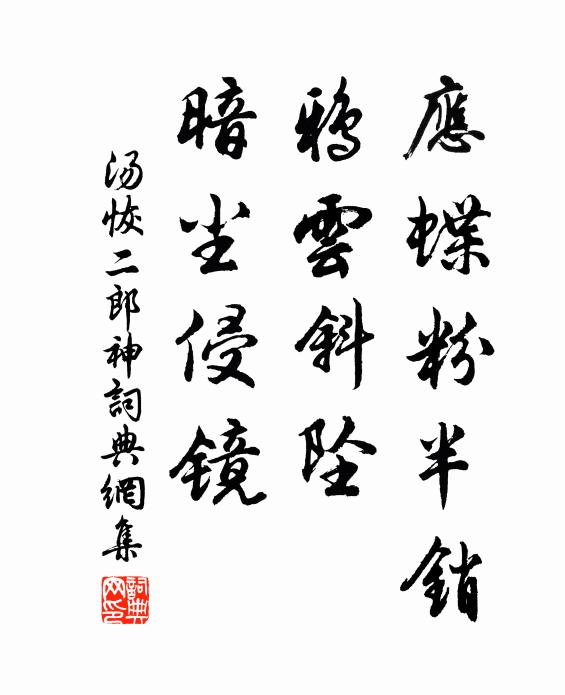 應蝶粉半銷
鴉雲斜坠
暗尘侵镜
汤恢二郎神詞典網集
詞典网印